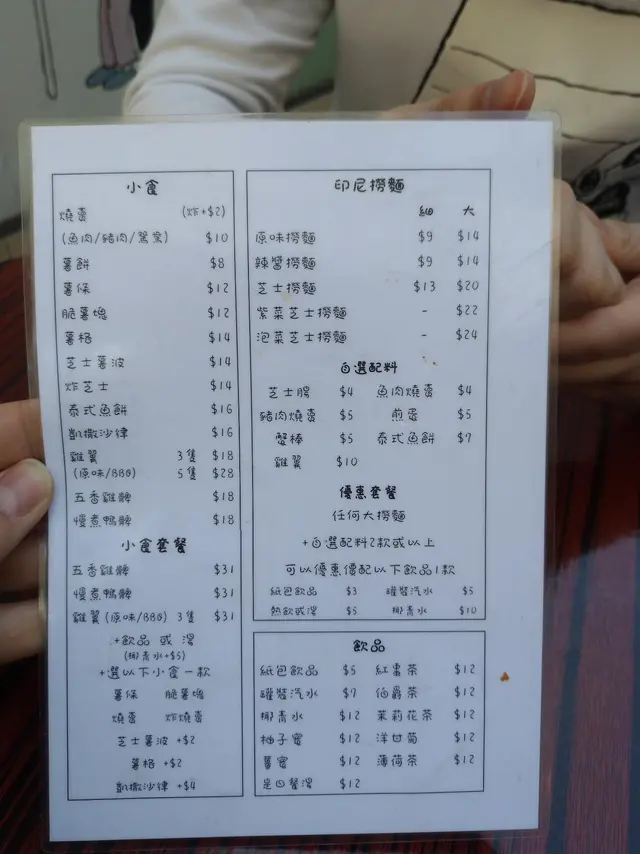 小食
燒賣 (炸+$2)
(魚肉/豬肉/鴛鴦) $10
薯餅 $8
薯條 $12
脆薯塊 $12
薯格 $14
芝士薯波 $14
炸芝士 $14
泰式魚餅 $16
凱撒沙律 $16
雞翼 3隻 $18
(原味/BBQ) 5隻 $28
五香雞髀 $18
慢煮鴨髀 $18
小食套餐
五香雞髀 $31
慢煮鴨髀 $31
雞翼(原味/BBQ) 3隻 $31
+飲品 或 湯
(椰青水+$5)
+選以下小食一款
薯條 脆薯塊
燒賣 炸燒賣
芝士薯波 +$2
薯格 +$2
凱撒沙律 +$4
印尼撈麵
細 大
原味撈麵 $9 $14
辣醬撈麵 $9 $14
芝士撈麵 $13 $20
紫菜芝士撈麵 - $22
泡菜芝士撈麵 - $24
自選配料
芝士腸 $4 魚肉燒賣 $4
豬肉燒賣 $5 煎蛋 $5
蟹棒 $5 泰式魚餅 $7
雞翼 $10
優惠套餐
任何大撈麵
+自選配料2款或以上
可以優惠價配以下飲品1款
紙包飲品 $3 罐裝汽水 $5
熱飲或湯 $5 椰青水 $10
飲品
紙包飲品 $5 紅棗茶 $12
罐裝汽水 $7 伯爵茶 $12
椰青水 $12 茉莉花茶 $12
柚子蜜 $12 洋甘菊 $12
薑蜜 $12 薄荷茶 $12
是日餐湯 $12